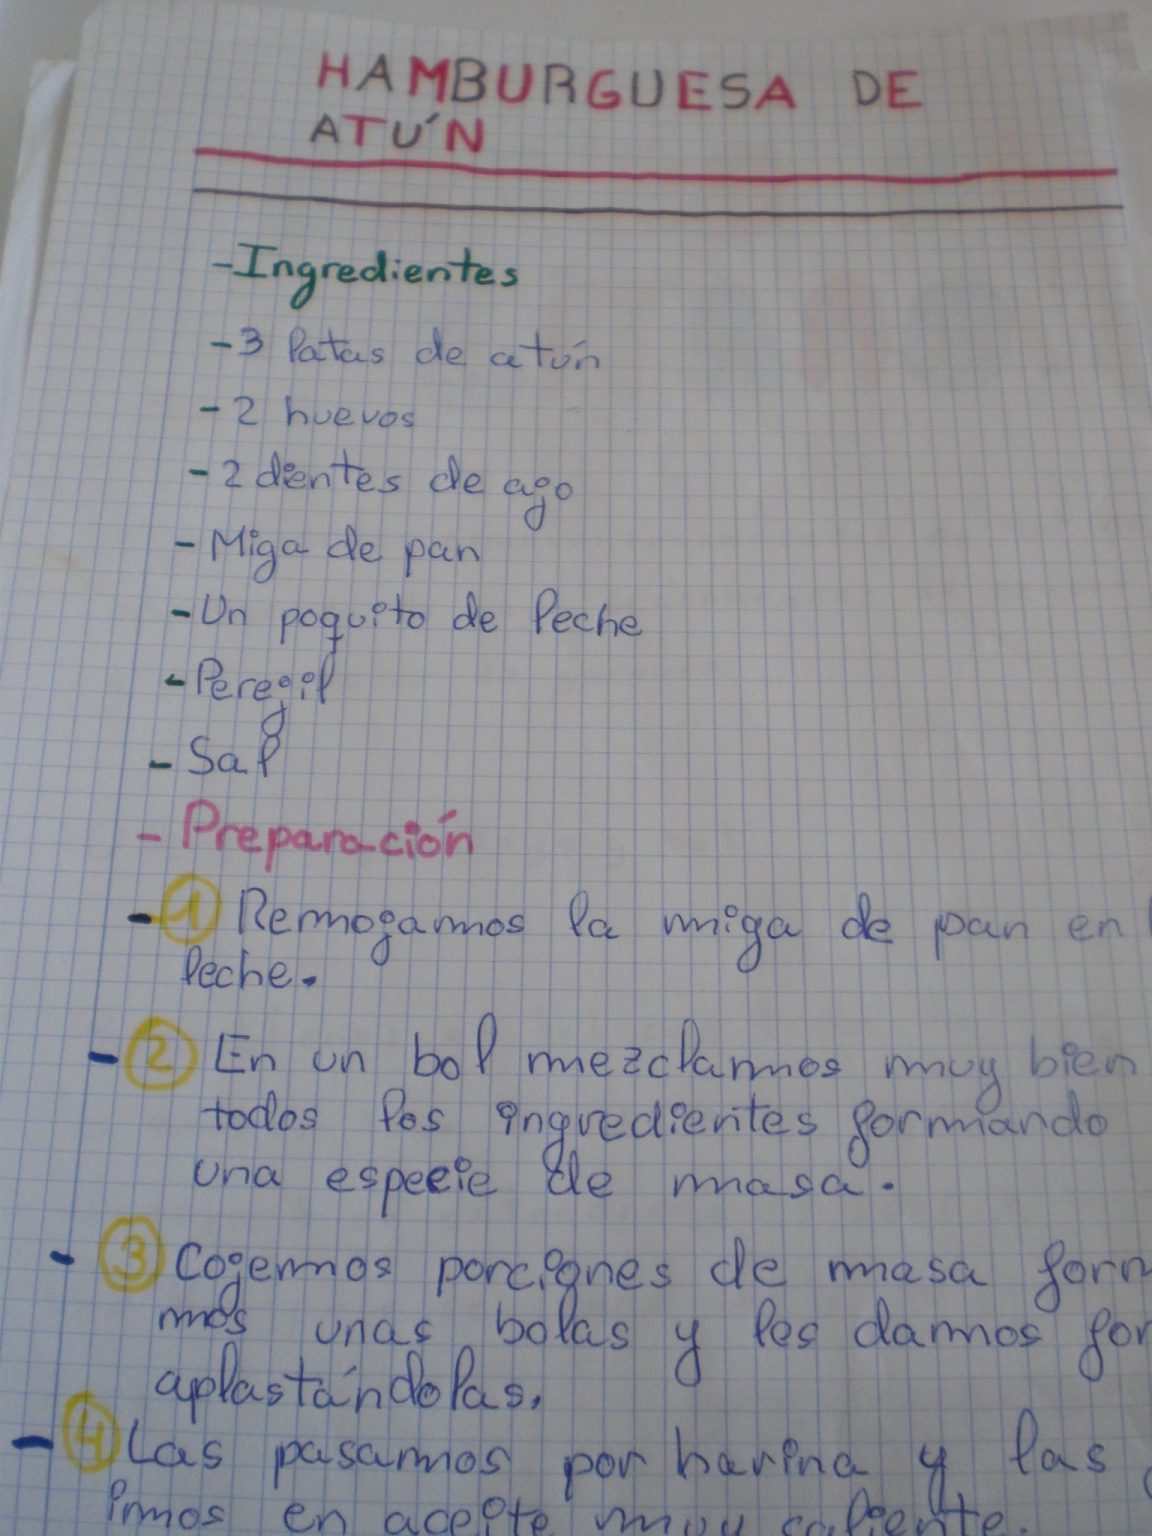 HAMBURGUESA DE
ATÚN
-Ingredientes
-3 latas de atún
-2 huevos
-2 dientes de ajo
-Miga de pan
-Un poquito de leche
-Peregil
-Sal
-Preparación
-1 Remojamos la miga de pan en
leche.
-2 En un bol mezclamos muy bien
todos los ingredientes formando
una especie de masa.
-3 Cojemos porciones de masa form
mos unas bolas y les damos for
aplastándolas.
-4 Las pasamos por harina y las
imos en aceite muy caliente.